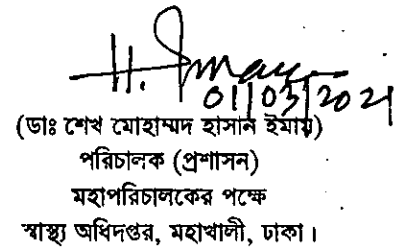 H. Imam
01/03/2021
(ডাঃ শেখ মোহাম্মদ হাসান ইমাম)
পরিচালক (প্রশাসন)
মহাপরিচালকের পক্ষে
স্বাস্থ্য অধিদপ্তর, মহাখালী, ঢাকা।